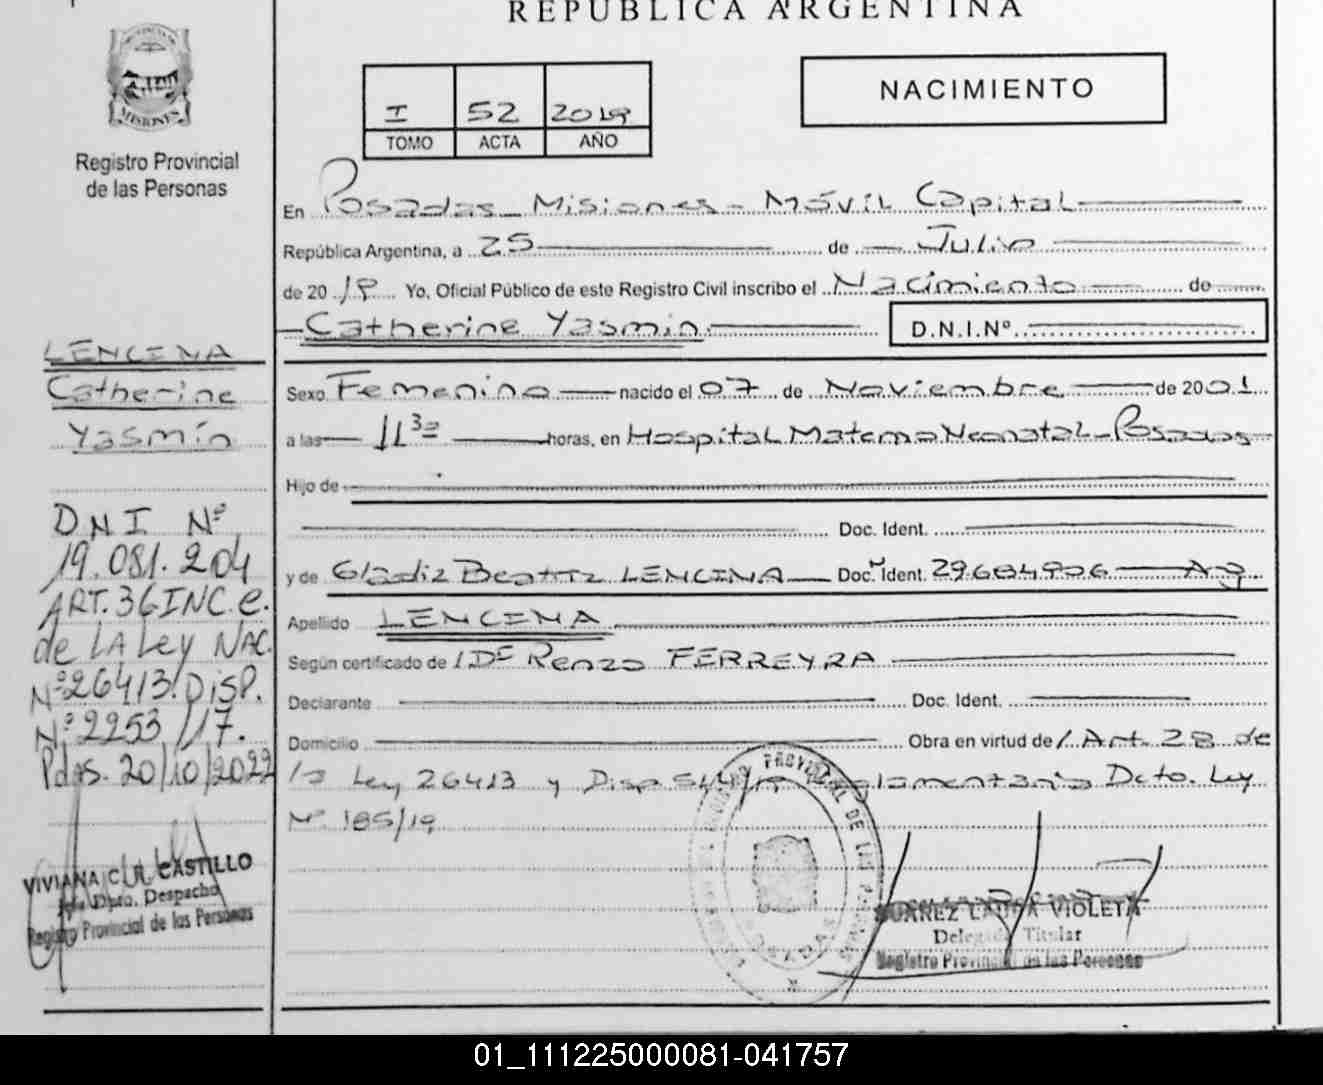 REPÚBLICA ARGENTINA
PROVINCIA DE
MISIONES
Registro Provincial
de las Personas
I 52 2019
TOMO ACTA AÑO
NACIMIENTO
En Posadas Misiones - Móvil Capital
República Argentina, a 25 de Julio
de 2019 Yo, Oficial Público de este Registro Civil inscribo el Nacimiento de
Catherine Yasmin D.N.I.Nº
Sexo Femenino nacido el 07 de Noviembre de 2001
a las 11³⁰ horas, en Hospital Materno Neonatal - Posadas
Hijo de
Doc. Ident.
y de Gladiz Beatriz LENCINA Doc. Ident. 29.684.906 Arg
Apellido LENCINA
Según certificado de Renzo FERREYRA
Declarante Doc. Ident.
Domicilio Obra en virtud de Art. 28 de
la Ley 26413 y Disp. Reglamentaria Dcto. Ley
Nº 185/19
LENCINA
Catherine
Yasmín
DNI Nº
19.081.204
ART. 36 INC. e.
de LA Ley NAC.
Nº 26413. DISP.
Nº 2253/17.
Pdas. 20/10/2022
VIVIANA CASTILLO
Jefe Dpto. Despacho
Registro Provincial de las Personas
PROVINCIAL DE LAS
POSADAS
SUAREZ LAURA VIOLETA
Delegada Titular
Registro Provincial de las Personas
01_111225000081-041757